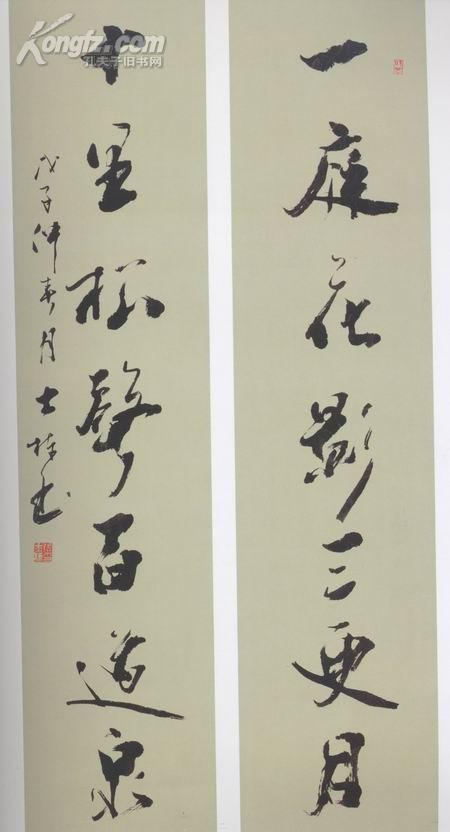 Kongfz.com
孔夫子旧书网
一庭花影三更月
十里松聲百道泉
戊子仲春月士